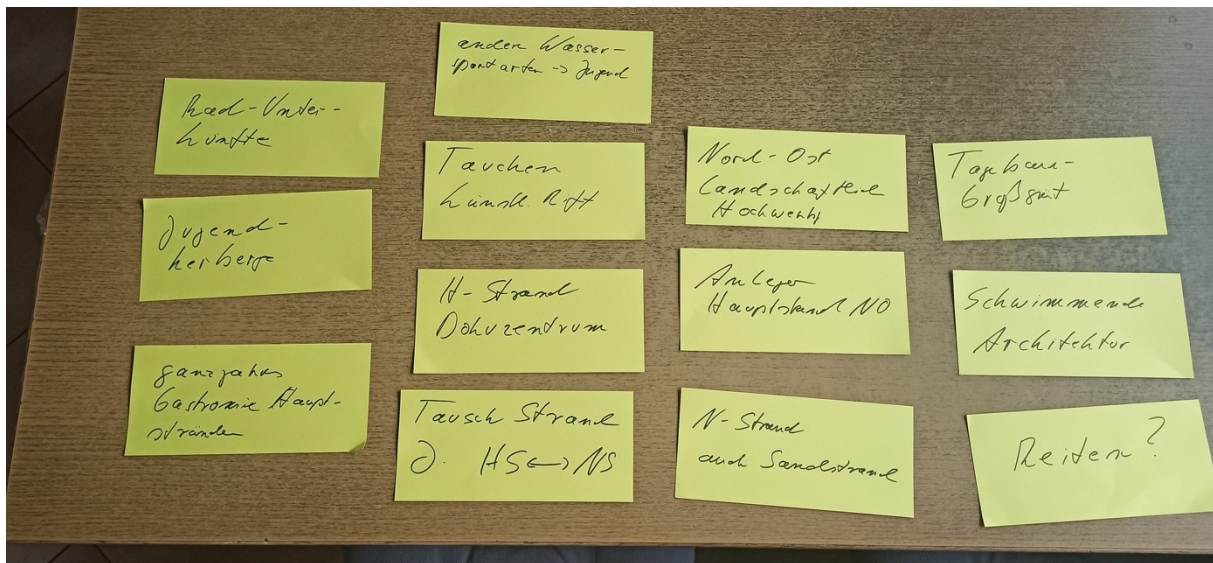 Rad-Unter-
künfte
Jugend-
herberge
ganzjahres
Gastronomie Haupt-
stränden
andere Wasser-
sportarten -> Jugend
Tauchen
künstl. Riff
H-Strand
Dokuzentrum
Tausch Strand
J. HS <-> NS
Nord-Ost
Landschaftlich
Hochwertig
Anleger
Hauptstrand NO
N-Strand
auch Sandstrand
Tagebau-
Großgerät
Schwimmende
Architektur
Reiten?